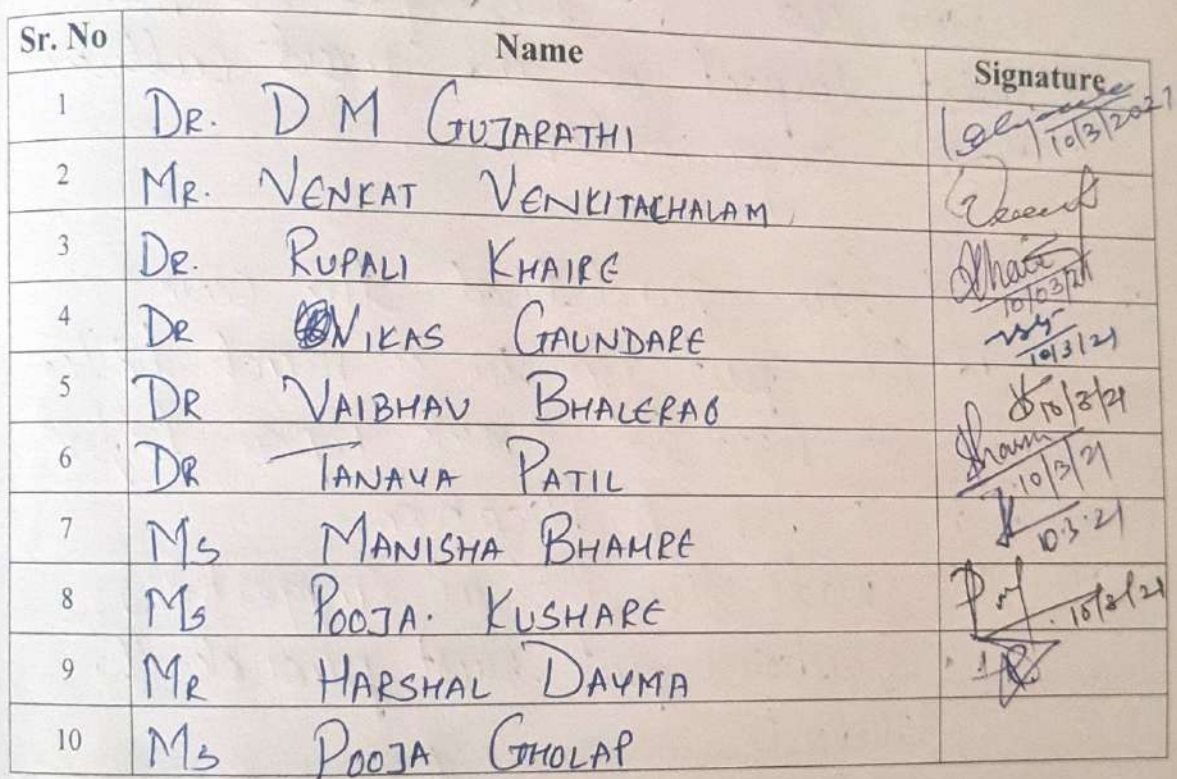 Sr. No Name Signature
1 DR. D M GUJARATHI 10/3/2021
2 MR. VENKAT VENKITACHALAM
3 DR. RUPALI KHAIRE 10/03/21
4 DR VIKAS GAUNDARE 10/3/21
5 DR VAIBHAV BHALERAO 10/3/21
6 DR TANAYA PATIL 10/3/21
7 MS MANISHA BHAMRE 10.3.21
8 MS POOJA. KUSHARE 10/3/21
9 MR HARSHAL DAYMA
10 MS POOJA GHOLAP